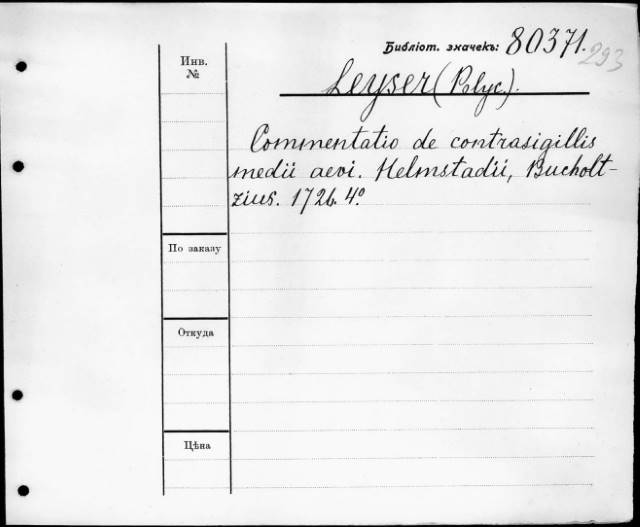 Библіот. значекъ: 80371.
293
Инв.
№
Leyser (Polyc.).
Commentatio de contrasigillis
medii aevi. Helmstadii, Bucholt-
zius. 1726. 4º
По заказу
Откуда
Цѣна